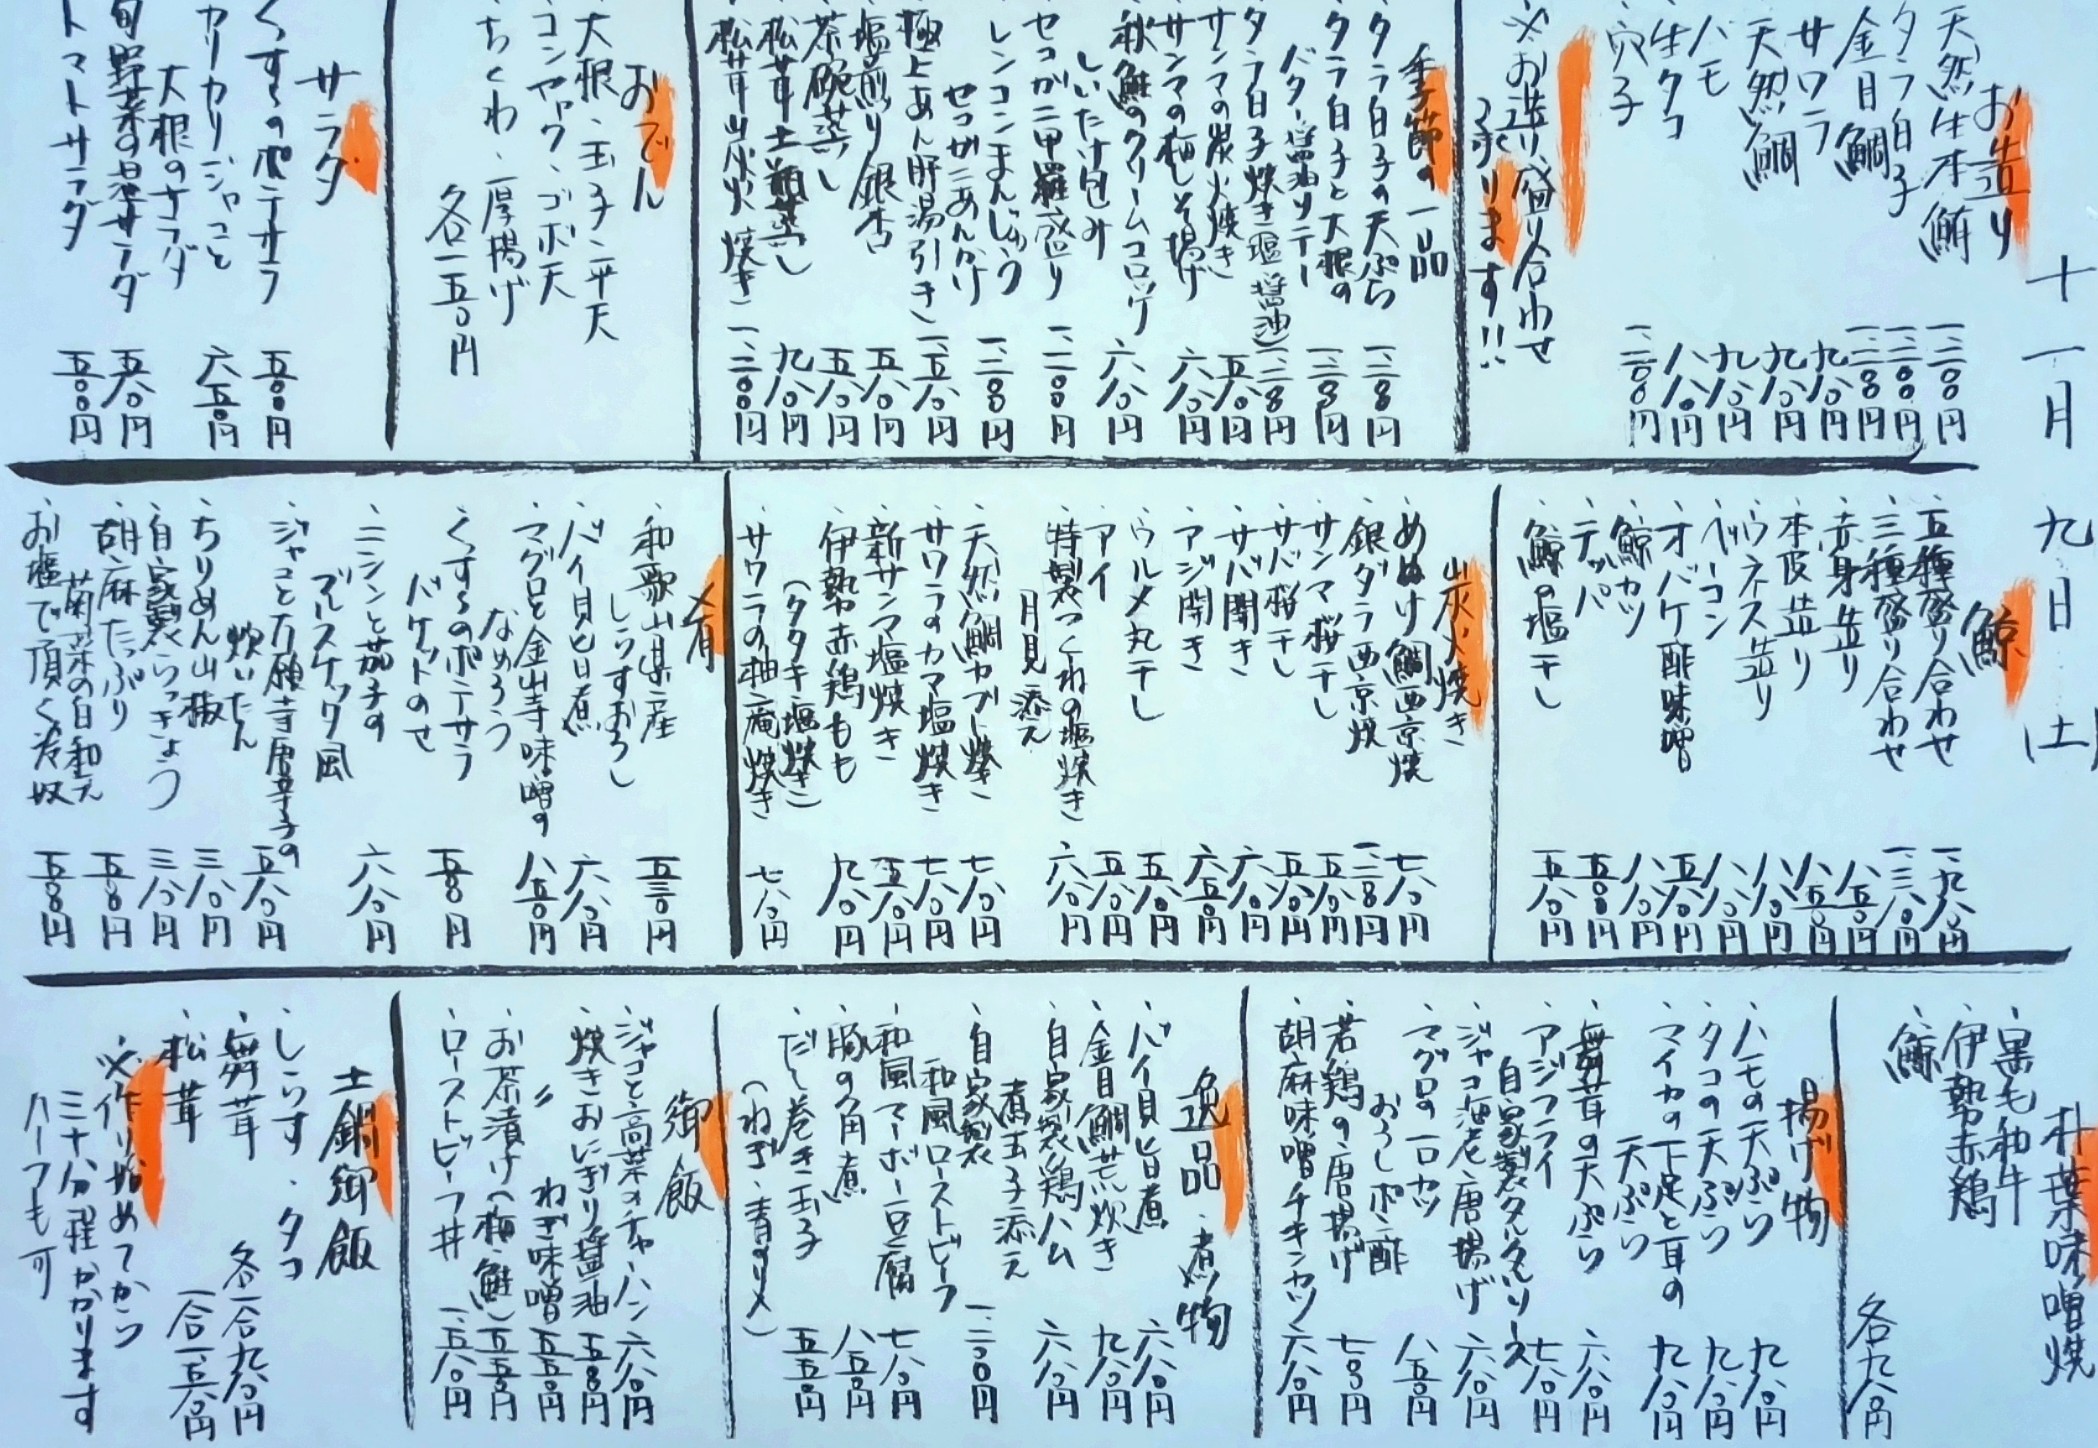 十一月九日(土)
お造り
・天然生本鮪 一、二〇〇円
・タラ白子 一、二〇〇円
・金目鯛 一、二〇〇円
・サワラ 九八〇円
・天然鯛 九八〇円
・ハモ 九八〇円
・生タコ 八八〇円
・穴子 一、二〇〇円
※お造り盛り合わせ
承ります!!
季節の一品
・タラ白子の天ぷら 一、二〇〇円
・タラ白子と大根の
バター醤油ソテー 一、二〇〇円
・タラ白子焼き(塩・醤油) 一、二〇〇円
・サンマの炭火焼き 五八〇円
・サンマの梅しそ揚げ 六八〇円
・秋鮭のクリームコロッケ
しいたけ包み 六八〇円
・セコガニ甲羅盛り 二、二〇〇円
・レンコンまんじゅう
せつがにあんかけ 一、二〇〇円
・極上あん肝湯引き 一、五八〇円
・塩煎り銀杏 五八〇円
・茶碗蒸し 五八〇円
・松茸土瓶蒸し 九八〇円
・松茸炭火焼き 一、二〇〇円
おでん
・大根・玉子・平天
・コンニャク・ゴボ天
・ちくわ・厚揚げ
各一五〇円
サラダ
・くずしのポテサラ 五〇〇円
・カリカリジャコと
大根のサラダ 六五〇円
・旬野菜の温サラダ 五八〇円
・トマトサラダ 五〇〇円
鯨
・五種盛り合わせ 一、九八〇円
・三種盛り合わせ 一、三八〇円
・赤身造り 八五〇円
・本皮造り 八五〇円
・ウネス造り 八八〇円
・ベーコン 八八〇円
・オバケ酢味噌 五八〇円
・鯨カツ 八八〇円
・テッパ 五〇〇円
・鯨の塩干し 五八〇円
炭火焼き
・めぬけ鯛西京焼 七八〇円
・銀ダラ西京焼 一、二〇〇円
・サンマ桜干し 五八〇円
・サバ桜干し 五八〇円
・サバ開き 六八〇円
・アジ開き 六五〇円
・ウルメ丸干し 五八〇円
・アイ 五八〇円
・特製つくねの塩焼き
月見添え 六八〇円
・天然鯛カブト焼き 七八〇円
・サワラのカマ塩焼き 七八〇円
・新サンマ塩焼き 五八〇円
・伊勢赤鶏もも
(タタキ・塩焼き) 九八〇円
・サワラの柚庵焼き 七八〇円
肴
・和歌山県産
しらすおろし 五三〇円
・バイ貝旨煮 六八〇円
・マグロと金山寺味噌の
なめろう 八五〇円
・くずしのポテサラ
バケットのせ 五五〇円
・ニシンと茄子の
ブルスケッタ風 六八〇円
・ジャコと万願寺唐辛子の
炊いたん 五八〇円
・ちりめん山椒 三八〇円
・自家製らっきょう 三八〇円
・胡麻たっぷり
菊菜の白和え 五五〇円
・お塩で頂く冷奴 五〇〇円
朴葉味噌焼
・黒毛和牛
・伊勢赤鶏
・鯨
各九八〇円
揚げ物
・ハモの天ぷら 九八〇円
・タコの天ぷら 九八〇円
・マイカの下足と耳の
天ぷら 九八〇円
・舞茸の天ぷら 六八〇円
・アジフライ
自家製タルタルソース 七八〇円
・ジャコ海老唐揚げ 六八〇円
・マグロの一口カツ
おろしポン酢 八五〇円
・若鶏の唐揚げ 七〇〇円
・胡麻味噌チキンカツ 六八〇円
逸品・煮物
・バイ貝旨煮 六八〇円
・金目鯛荒炊き 九八〇円
・自家製鶏ハム
煮玉子添え 六八〇円
・自家製
和風ローストビーフ 一、二〇〇円
・和風マーボー豆腐 七八〇円
・豚の角煮 八五〇円
・だし巻き玉子
(ねぎ・青のり・〆) 五五〇円
御飯
・ジャコと高菜のチャーハン 六八〇円
・焼きおにぎり醤油 五〇〇円
〃 ねぎ味噌 五五〇円
・お茶漬け(梅・鮭) 五五〇円
・ローストビーフ丼 一、五八〇円
土鍋御飯
・しらす・タコ
・舞茸 各一合九八〇円
・松茸 一合一、五八〇円
※作り始めてから
三十分程かかります
ハーフも可